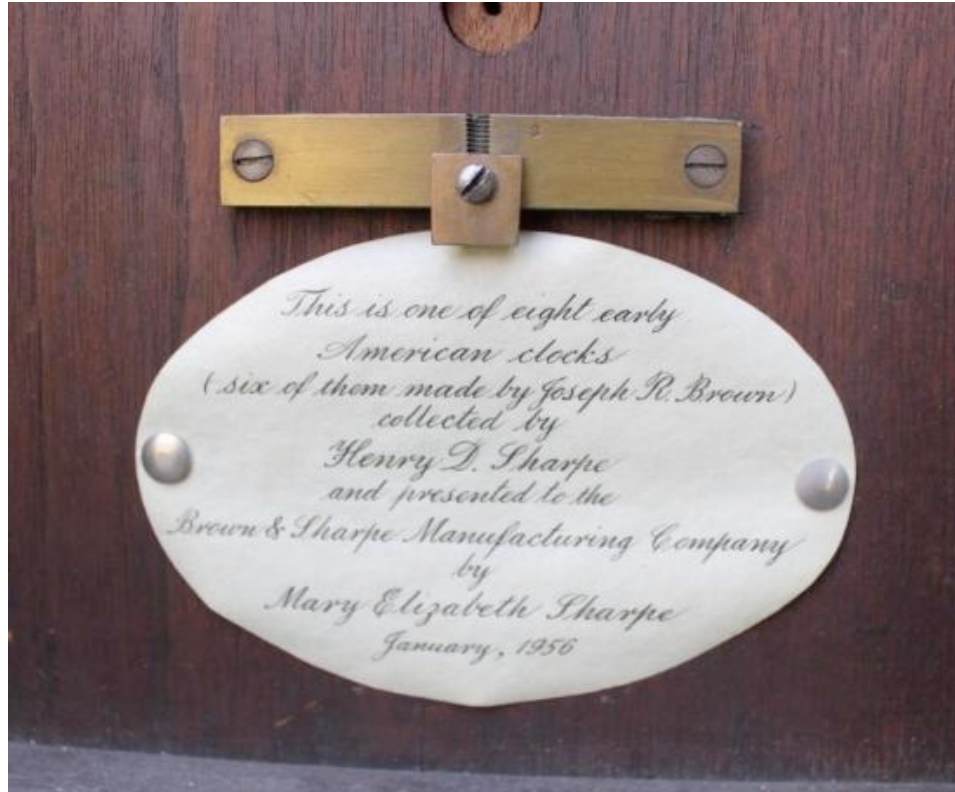 This is one of eight early
American clocks
(six of them made by Joseph R. Brown)
collected by
Henry D. Sharpe
and presented to the
Brown & Sharpe Manufacturing Company
by
Mary Elizabeth Sharpe
January, 1956